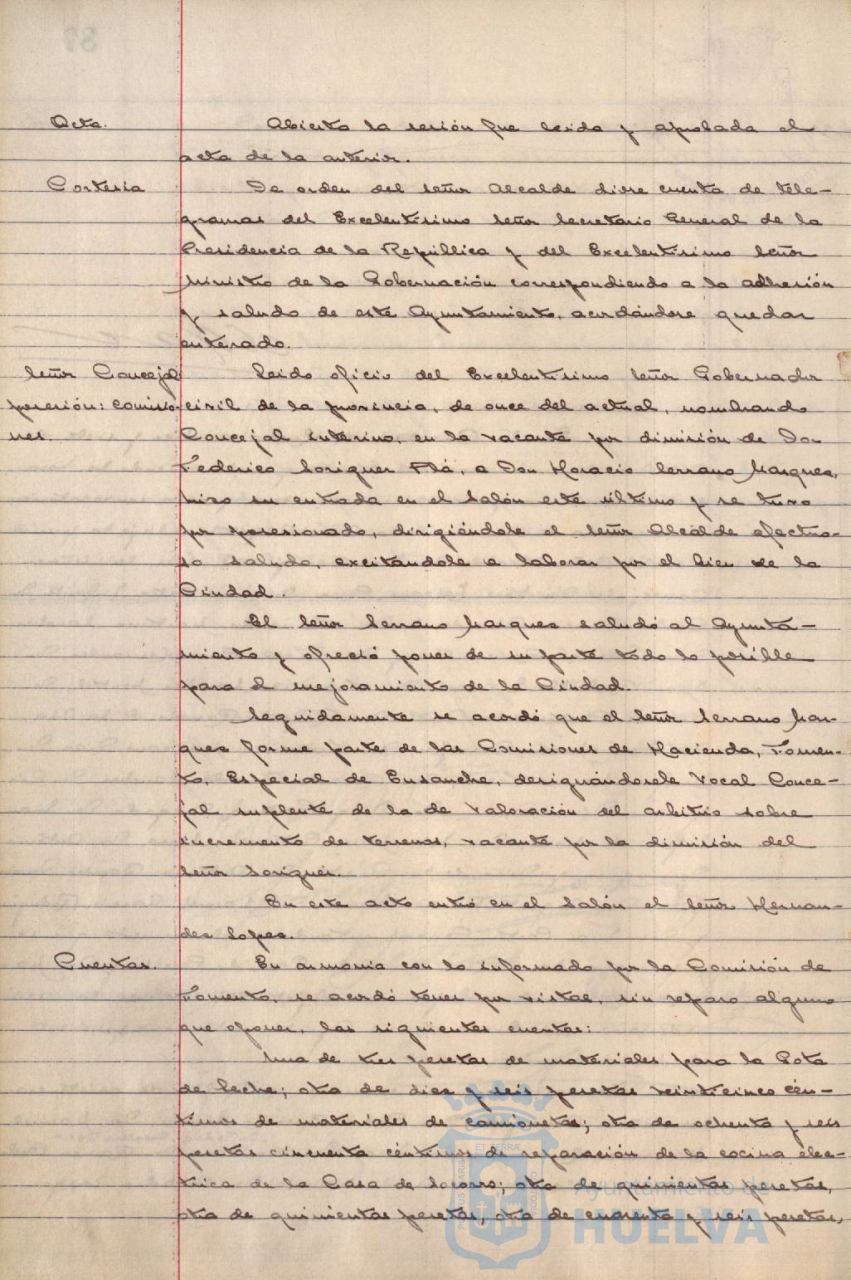 Acta. Abierta la sesión fue leida y aprobada el
acta de la anterior.
Cortesia De orden del señor Alcalde diose cuenta de tele-
gramas del Excelentisimo señor Secretario General de la
Presidencia de la República y del Excelentisimo Señor
Ministro de la Gobernación correspondiendo a la adhesión
y saludo de este Ayuntamiento, acordándose quedar
enterado.
Señor Concejal Leido oficio del Excelentisimo Señor Gobernador
posesión: comisio- civil de la provincia, de once del actual, nombrando
nes. Concejal interino, en la vacante por dimisión de Don
Federico Soriguer Plá, a Don Horacio Serrano Marques,
hizo su entrada en el Salón este último y se tuvo
por posesionado, dirigiéndole el señor Alcalde afectuo-
so saludo, excitandole a laborar por el bien de la
Ciudad.
El Señor Serrano Marques saludó al Ayunta-
miento y ofreció poner de su parte todo lo posible
para el mejoramiento de la Ciudad.
Seguidamente se acordó que el señor Serrano Mar-
ques forme parte de las Comisiones de Hacienda, Fomen-
to, Especial de Ensanche, designándosele Vocal Conce-
jal suplente de la de Valoración del arbitrio sobre
incremento de terrenos, vacante por la dimisión del
Señor Soriguer.
En este acto entró en el Salón el señor Hernan-
des Lopes.
Cuentas. En armonia con lo informado por la Comisión de
Fomento, se acordó tener por vistas, sin reparo alguno
que oponer, las siguientes cuentas:
Una de tres pesetas de materiales para la Gota
de Leche; otra de dies y seis pesetas veinticinco cén-
timos de materiales de camionetas; otra de ochenta y seis
pesetas cincuenta céntimos de reparación de la cocina elec-
trica de la Casa de Socorro; otra de quinientas pesetas,
otra de quinientas pesetas, otra de cuarenta y seis pesetas,
Ayuntamiento de
HUELVA